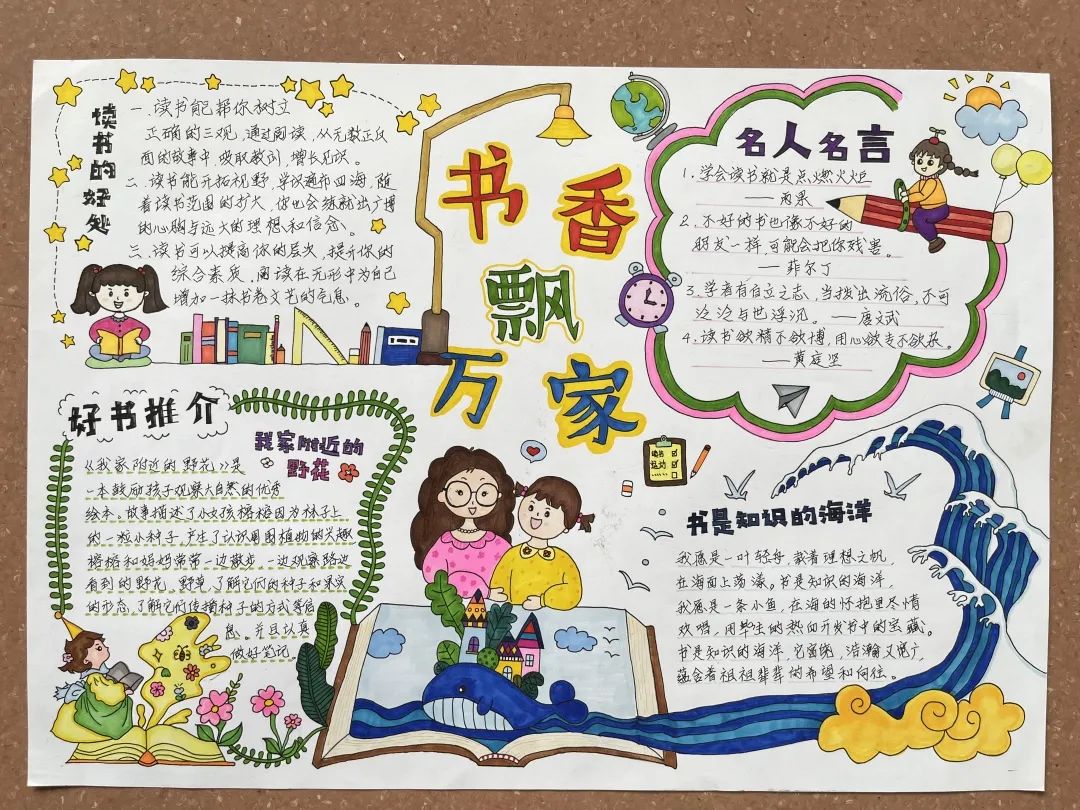 书香
飘
万家
读书的好处
一.读书能帮你树立
正确的三观，通过阅读，从无数正反
面的故事中吸取教训，增长见识。
二.读书能开拓视野，学识遍布四海，随
着读书范围的扩大，你也会练就出广博
的心胸与远大的理想和信念。
三.读书可以提高你的层次，提升你的
综合素质，阅读在无形中为自己
增加一抹书卷文艺的气息。
名人名言
1.学会读书就是点燃火炬
——雨果
2.不好的书也像不好的
朋友一样，可能会把你戕害。
——菲尔丁
3.学者有自立之志，当拔出流俗，不可
泛泛与世浮沉。——唐文斌
4.读书欲精不欲博，用心欲专不欲杂。
——黄庭坚
好书推介
我家附近的
野花
《我家附近的野花》是
一本鼓励孩子观察大自然的优秀
绘本。故事描述了小女孩榕榕因为袜子上
的一粒小种子，产生了认识周围植物的兴趣
榕榕和妈妈常常一边散步，一边观察路边
看到的野花、野草，了解它们的种子和果实
的形态，了解它们传播种子的方式等信
息。并且认真
做好笔记。
读书
运动
书是知识的海洋
我愿是一叶轻舟，载着理想之帆，
在海面上荡漾。书是知识的海洋，
我愿是一条小鱼，在海的怀抱里尽情
欢唱，用毕生的热血开发书中的宝藏。
书是知识的海洋，它富饶，浩瀚又宽广，
蕴含着祖祖辈辈的希望和向往。